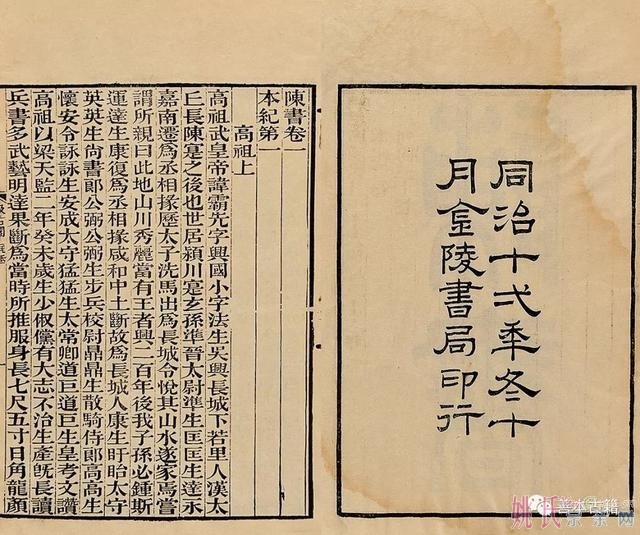 同治十弍秊冬十
月金陵書局印行
陳書卷一
本紀第一
高祖上
高祖武皇帝諱霸先字興國小字法生吳興長城下若里人漢太
丘長陳寔之後也世居潁川寔玄孫準晉太尉準生匡匡生達永
嘉南遷爲丞相掾歷太子洗馬出爲長城令悅其山水遂家焉嘗
謂所親曰此地山川秀麗當有王者興二百年後我子孫必鍾斯
運達生康復爲丞相掾咸和中土斷故爲長城人康生盱眙太守
英英生尚書郎公弼公弼生步兵校尉鼎鼎生散騎侍郎高高生
懷安令詠詠生安成太守猛猛生太常卿道巨道巨生皇考文讚
高祖以梁天監二年癸未歲生少俶儻有大志不治生產旣長讀
兵書多武藝明達果斷爲當時所推服身長七尺五寸日角龍顏
善本古籍
姚氏
网